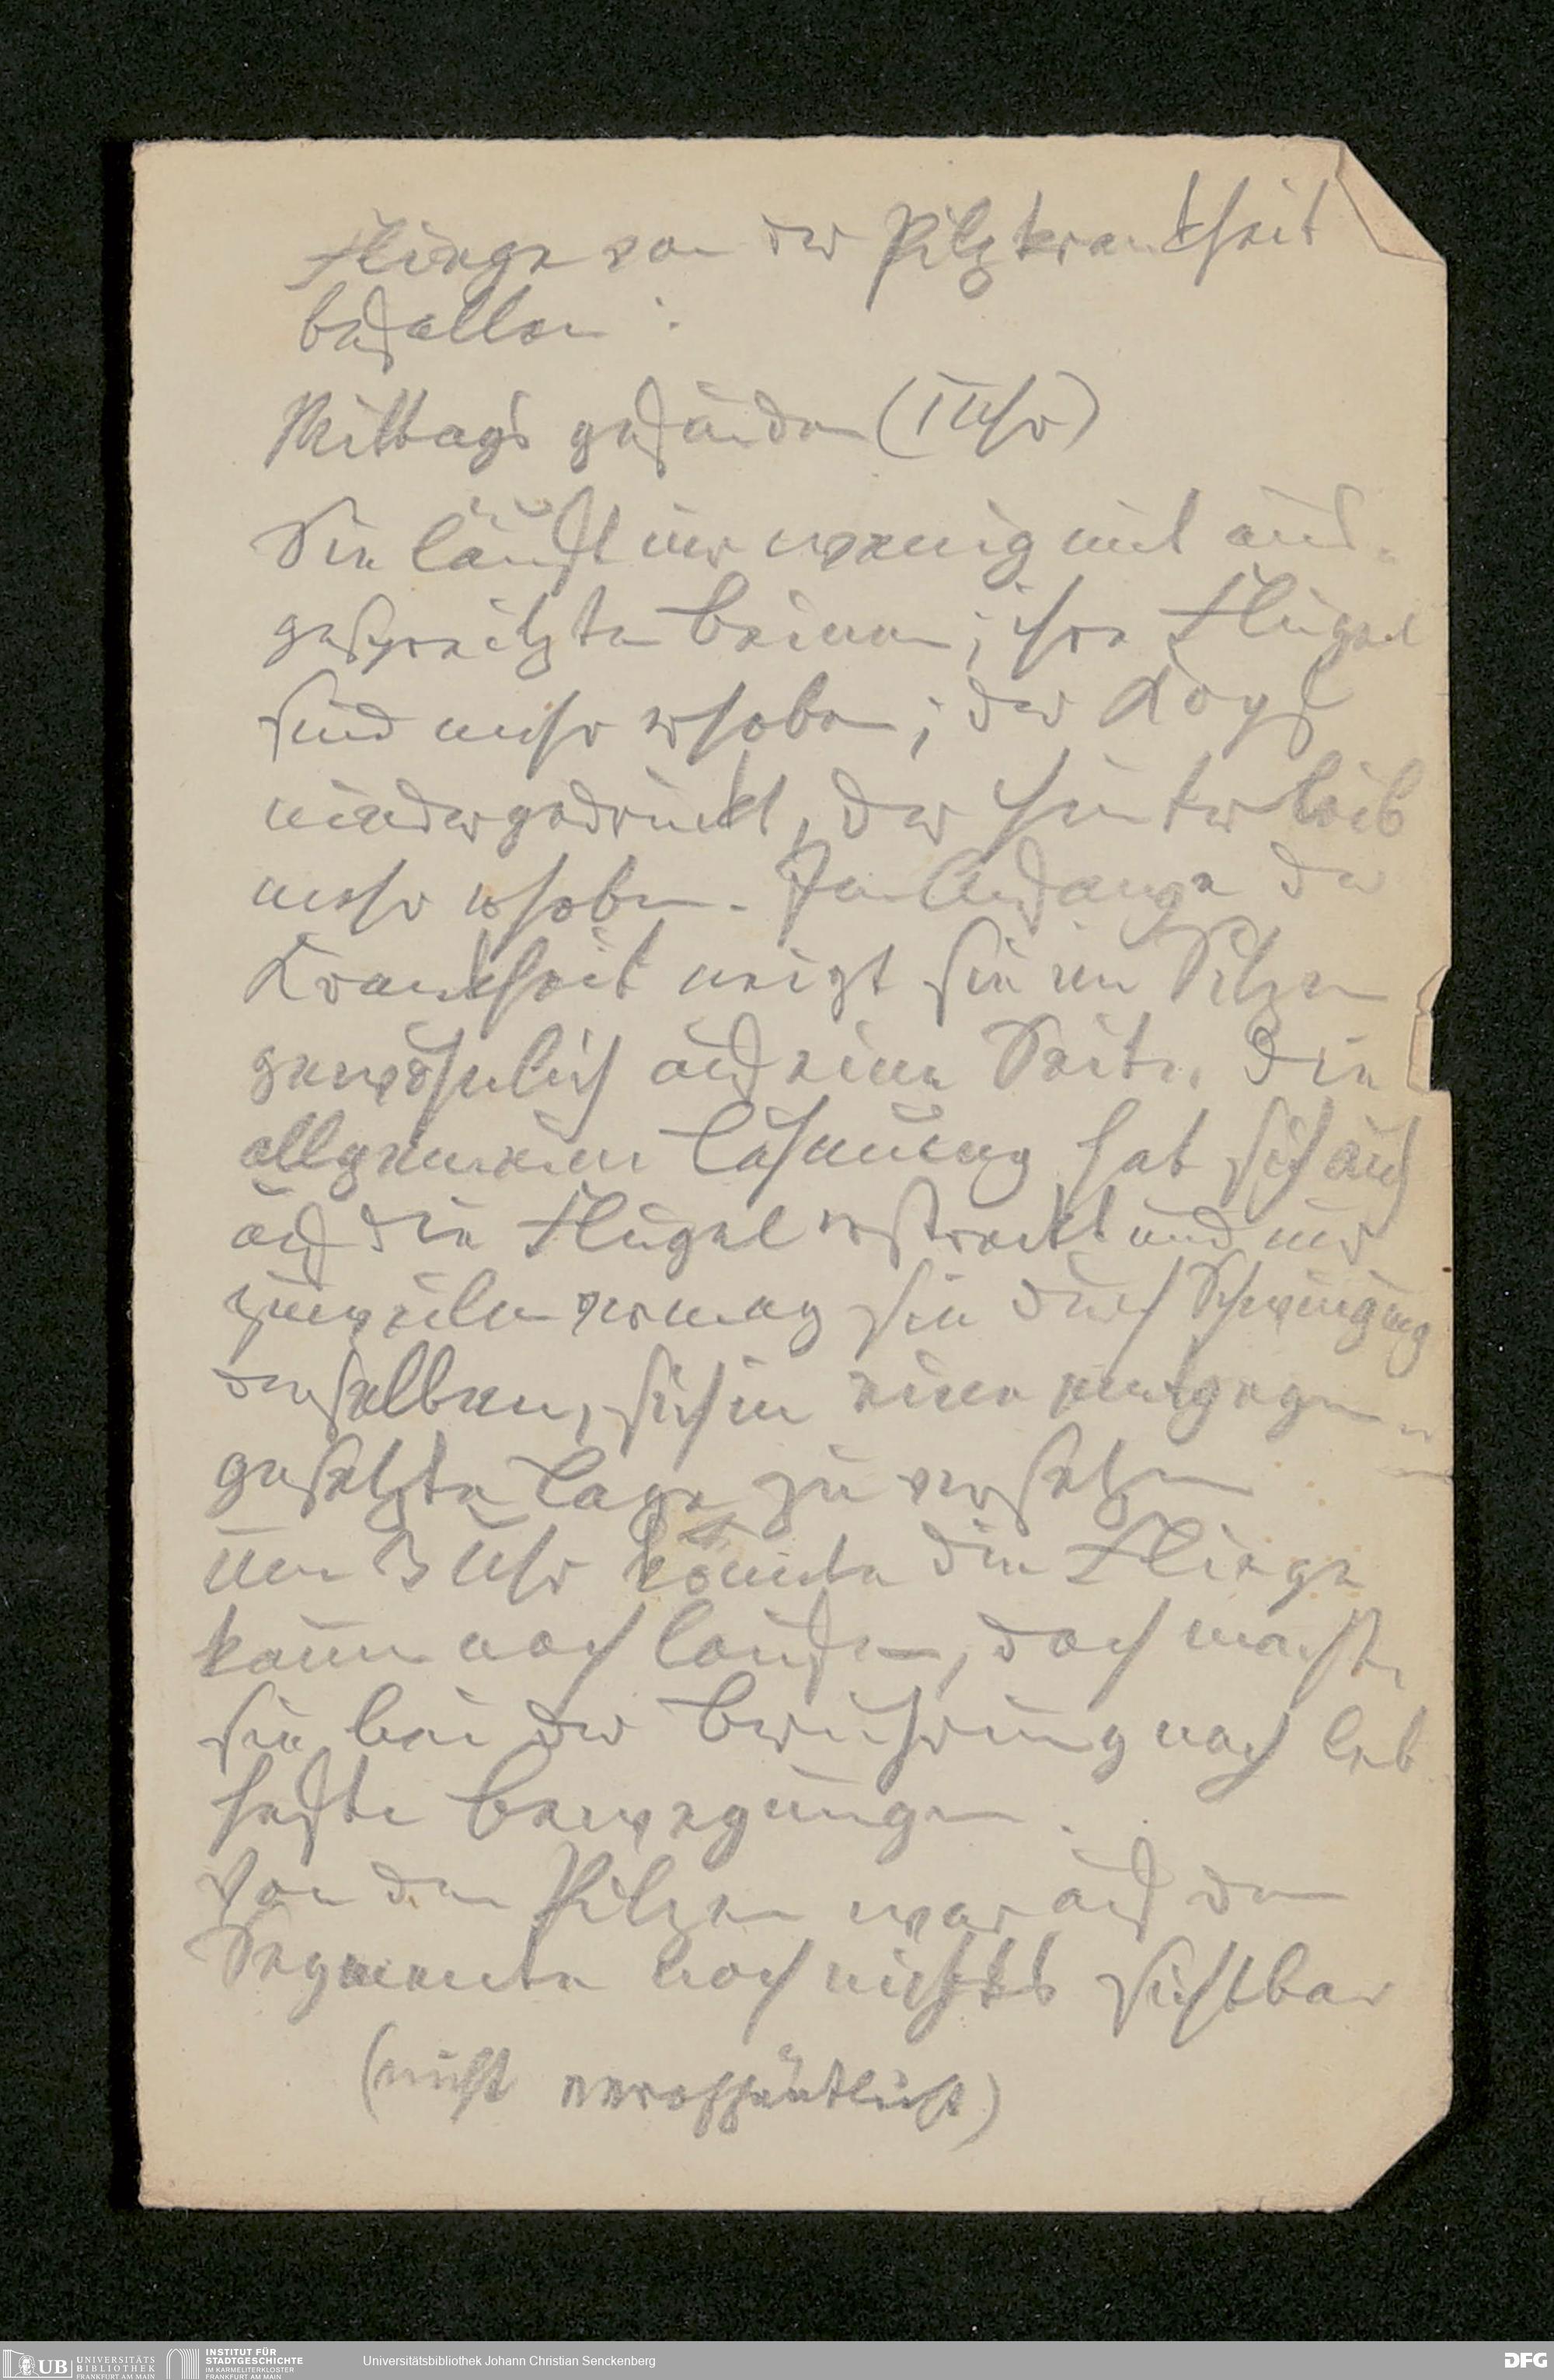 Fliege von der Pilzkrankheit
befallen:
Mittags gefunden (1 Uhr)
Sie läuft nur wenig mit aus-
gespreitzten Beinen; ihre Flügel
sind mehr erhoben; der Kopf
niedergedrückt, der Hinterleib
mehr erhoben. Im Anfange der
Krankheit neigt sie im Sitzen
gewöhnlich auf eine Seite. Die
allgemeine Lähmung hat sich auch
auf die Flügel erstreckt und nur
zuweilen vermag sie durch Schwingung
derselben, sich in eine entgegen-
gesetzte Lage zu versetzen
Um 3 Uhr konnte die Fliege
kaum noch laufen, doch machte
sie bei der Berührung noch leb
hafte Bewegungen.
Von den Pilzen war auf den
Segmenten noch nichts sichtbar
(nicht veröffentlicht)
UB UNIVERSITÄTS BIBLIOTHEK FRANKFURT AM MAIN
INSTITUT FÜR STADTGESCHICHTE IM KARMELITERKLOSTER FRANKFURT AM MAIN
Universitätsbibliothek Johann Christian Senckenberg
DFG